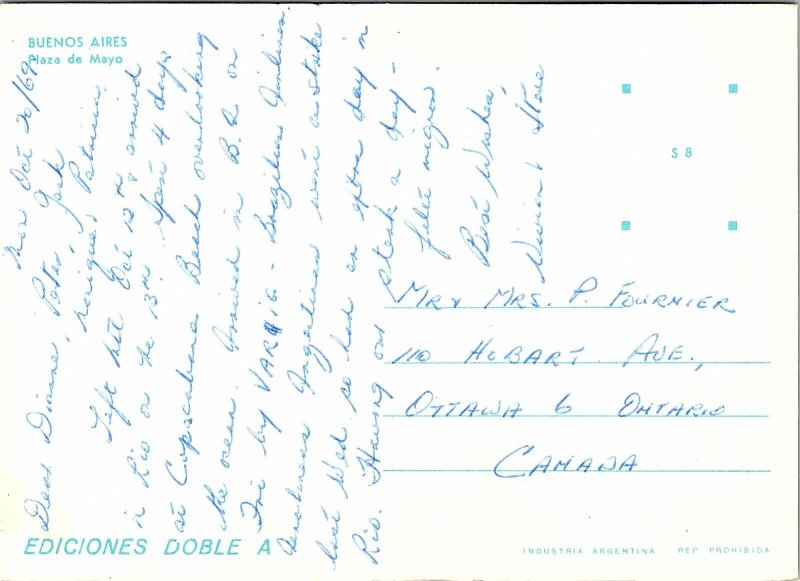 BUENOS AIRES
Plaza de Mayo
Mon Oct 20/69
Dear Dianne, Peter, Jack
Monique & Patricia,
Left Mtl Oct 12th & arrived
in Rio on the 13th. Spent 4 days
at Copacabana Beach overlooking
the ocean. Arrived in B.A. on
Fri by VARIG - Brazilian Airlines.
Aerolineas Argentinas went on strike
last Wed so had an extra day in
Rio. Having our steak a day -
filet mignon.
Best Wishes,
Vivian & Steve
S B
MR & MRS. P. FOURNIER
110 HOBART AVE.,
OTTAWA 6 ONTARIO
CANADA
EDICIONES DOBLE A
INDUSTRIA ARGENTINA REP PROHIBIDA